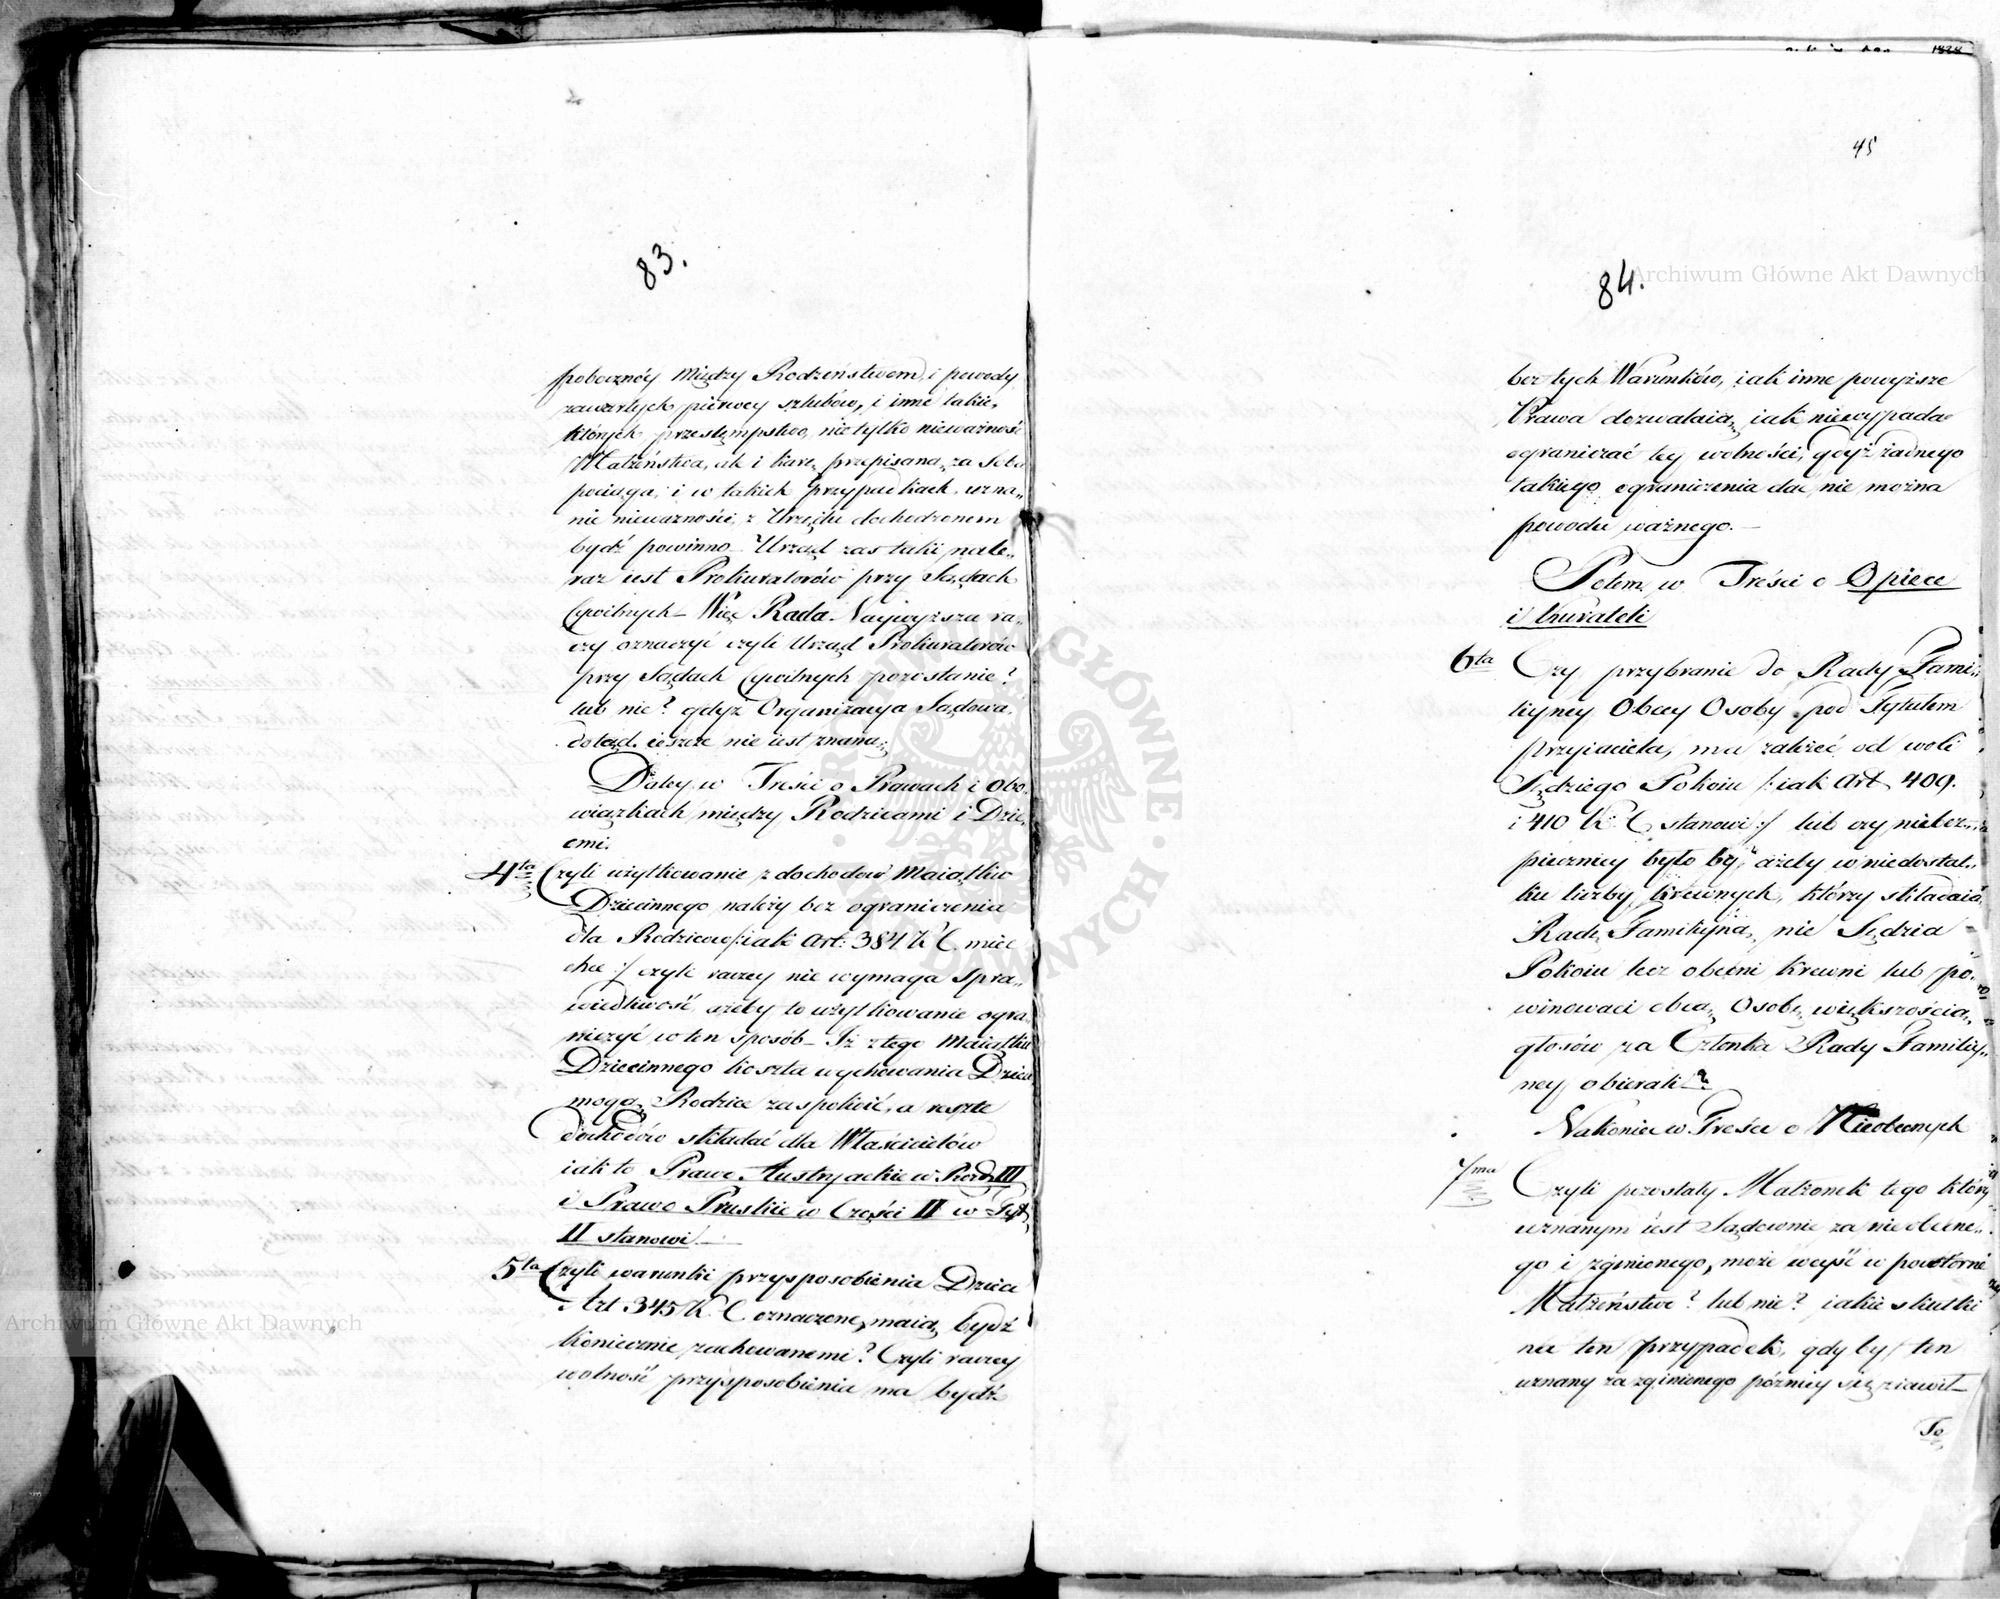 83.
pobocznéy między Rodzeństwem, i powody
zawartych pierwey szlubów, i inne takie,
których przestempstwo, nietylko nieważność
Małżeństwa, ale i karę przepisaną za sobą
pociąga; i w takich przypadkach, uzna„
nie nieważności, z Urzędu dochodzonem
bydź powinno_ Urząd zas taki nate„
raz iest Prokuratorów przy Sądach
Cywilnych_ Więc Rada Naywyższa ra„
czy oznaczyć czyli Urząd Prokuratorów
przy Sądach Cywilnych pozostanie?
lub nie? gdyż Organizacya Sądowa
dotąd ieszcze nie iest znana;
Daley w Treści o Prawach i Obo„
wiązkach między Rodzicami i Dzie„
cmi.
4ta Czyli użytkowanie z dochodów Maiątku
Dziecinnego należy bez ograniczenia
dla Rodziców /:iak Art: 384 K C. mieć
chce :/ czyli raczey nie wymaga Spra„
wiedliwość, ażeby to użytkowanie ogra„
niczyć w ten sposób_ Iż z tego Maiątku
Dziecinnego koszta wychowania Dzieci
mogą Rodzice zaspokoić, a resztę
dochodów składać dla Właścicielów
iak to Prawo Austryackie w Rozd. III
i Prawo Pruskie w Części II w Tyt.
II stanowi._
5ta Czyli warunki przysposobienia Dzieci
Art. 345 K. C oznaczone, maią bydź
koniecznie zachowanemi? Czyli raczey
wolność przysposobienia ma bydź
45
84.
bez tych Warunków, iak inne powyższe
Prawa dozwalaią, iak niewypada
ograniczać tey wolności, gdyż żadnego
takiego ograniczenia dać nie można
powodu ważnego._
Potem w Treści o Opiece
i kurateli
6ta Czy przybranie do Rady Fami„
liyney Obcey Osoby pod Tytułem
przyiaciela, ma zależeć od woli
Sędziego Pokoiu /:iak Art. 409.
i 410 K. C stanowi:/ lub czy niebez„
pieczniey było by, ażeby w niedostat„
ku liczby krewnych, którzy składaią
Radę Familiyną, nie Sędzia
Pokoiu lecz obecni krewni lub po„
winowaci obcą Osobę większością
głosów za Członka Rady Familiy„
ney obierali?
Nakoniec w Treści o Nieobecnych
7ma Czyli pozostały Małżonek tego który
uznanym iest Sądownie za nieobecne„
go i zginionego, może weyść w powtórne
Małżeństwo? lub nie? iakie skutki
na ten przypadek, gdy by ten
uznany za zginionego późniey się ziawił_
To
Archiwum Główne Akt Dawnych
Archiwum Główne Akt Dawnych
ARCHIWUM GŁÓWNE AKT DAWNYCH